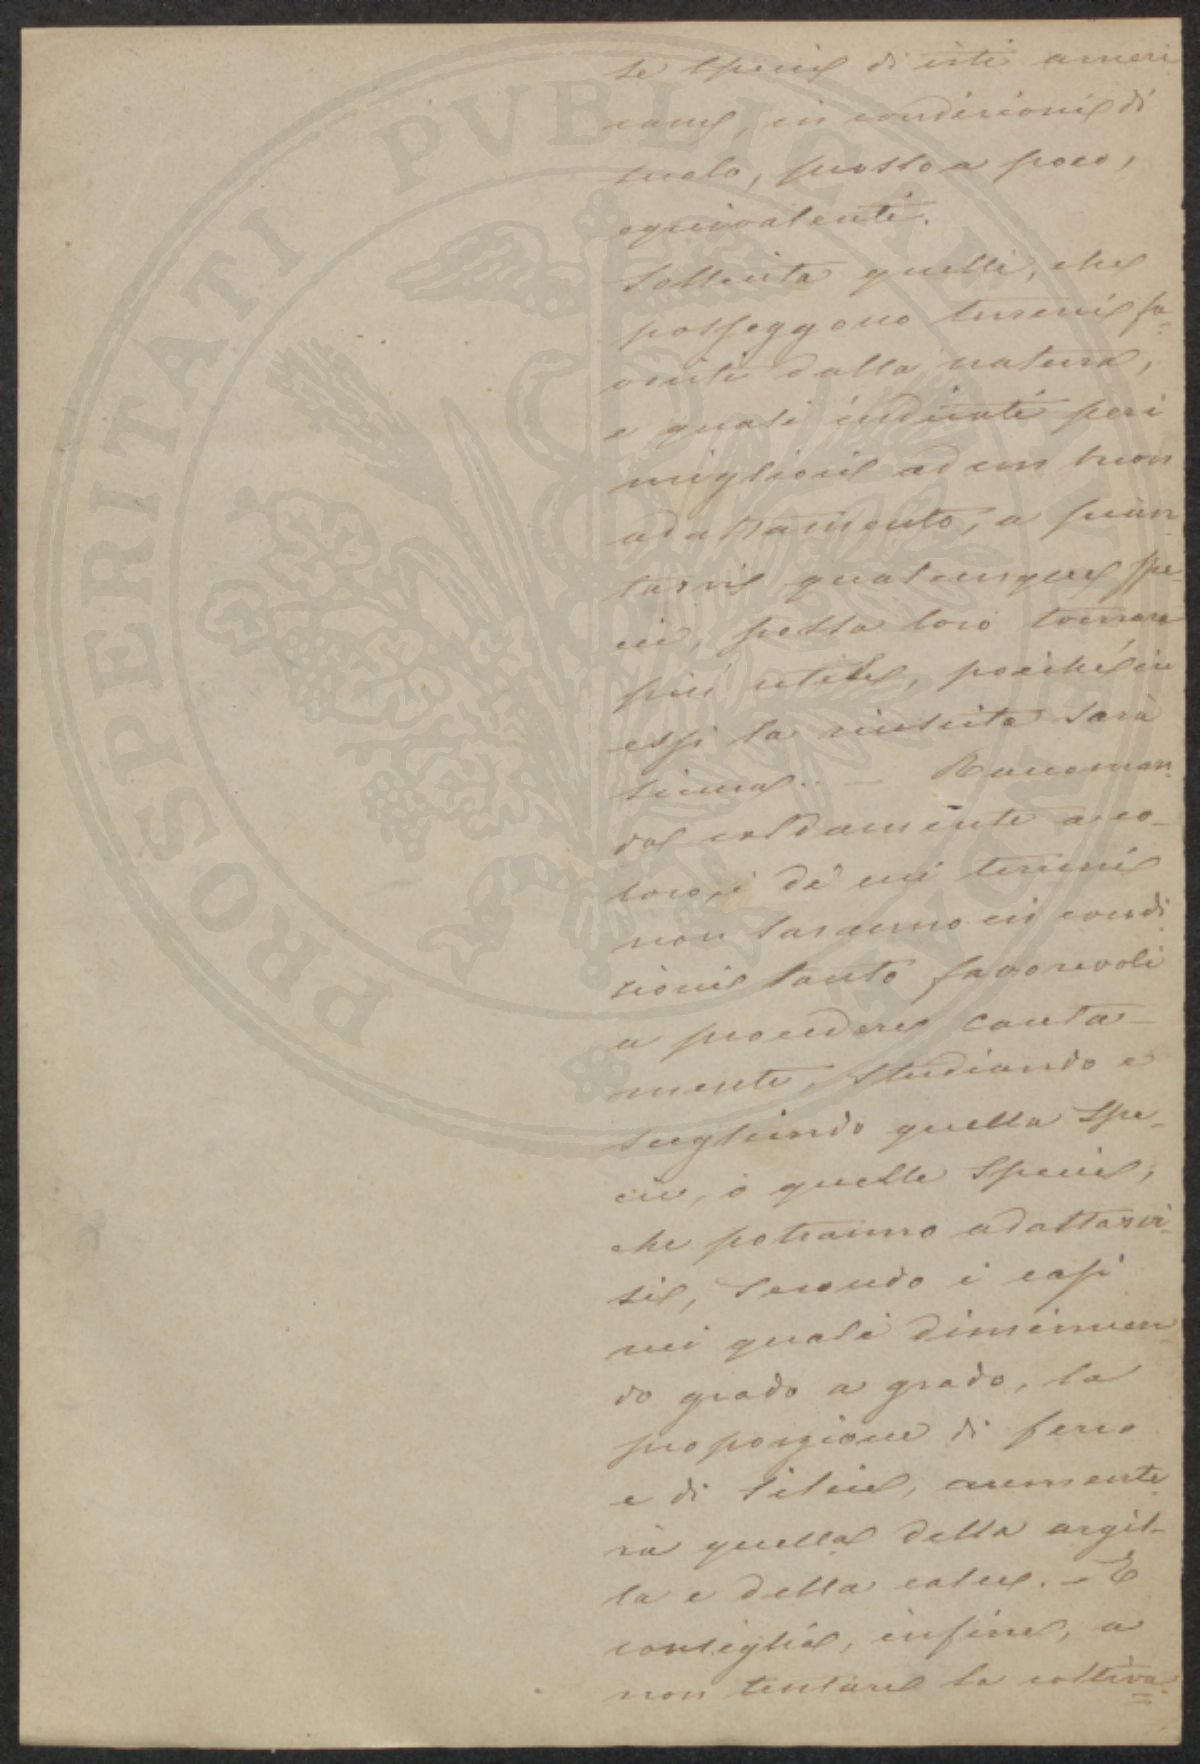 se specie di viti ameri
cane, in condizioni di
suolo, presso a poco,
equivalenti.
Sollecita quelli, che
posseggono terreni fa-
voriti dalla natura,
e quali indicati per i
migliori ad un buon
adattamento, a pian
tarvi qualunque spe-
cie, possa loro tornare
più utile, poiché in
essi la riuscita sarà
sicura.. — Raccoman
da caldamente a co-
loro, i di cui terreni
non saranno in condi
zioni tanto favorevoli
a procedere cauta-
mente, studiando e
scegliendo quella spe-
cie, o quelle specie,
che potranno adattarvi-
si, secondo i casi
nei quali diminuen
do grado a grado, la
proporzione di ferro
e di silice, aumente
rà quella della argil-
la e della calce. — E
consiglia, infine, a
non tentare la coltiva-
PROSPERITATI PUBLICAE